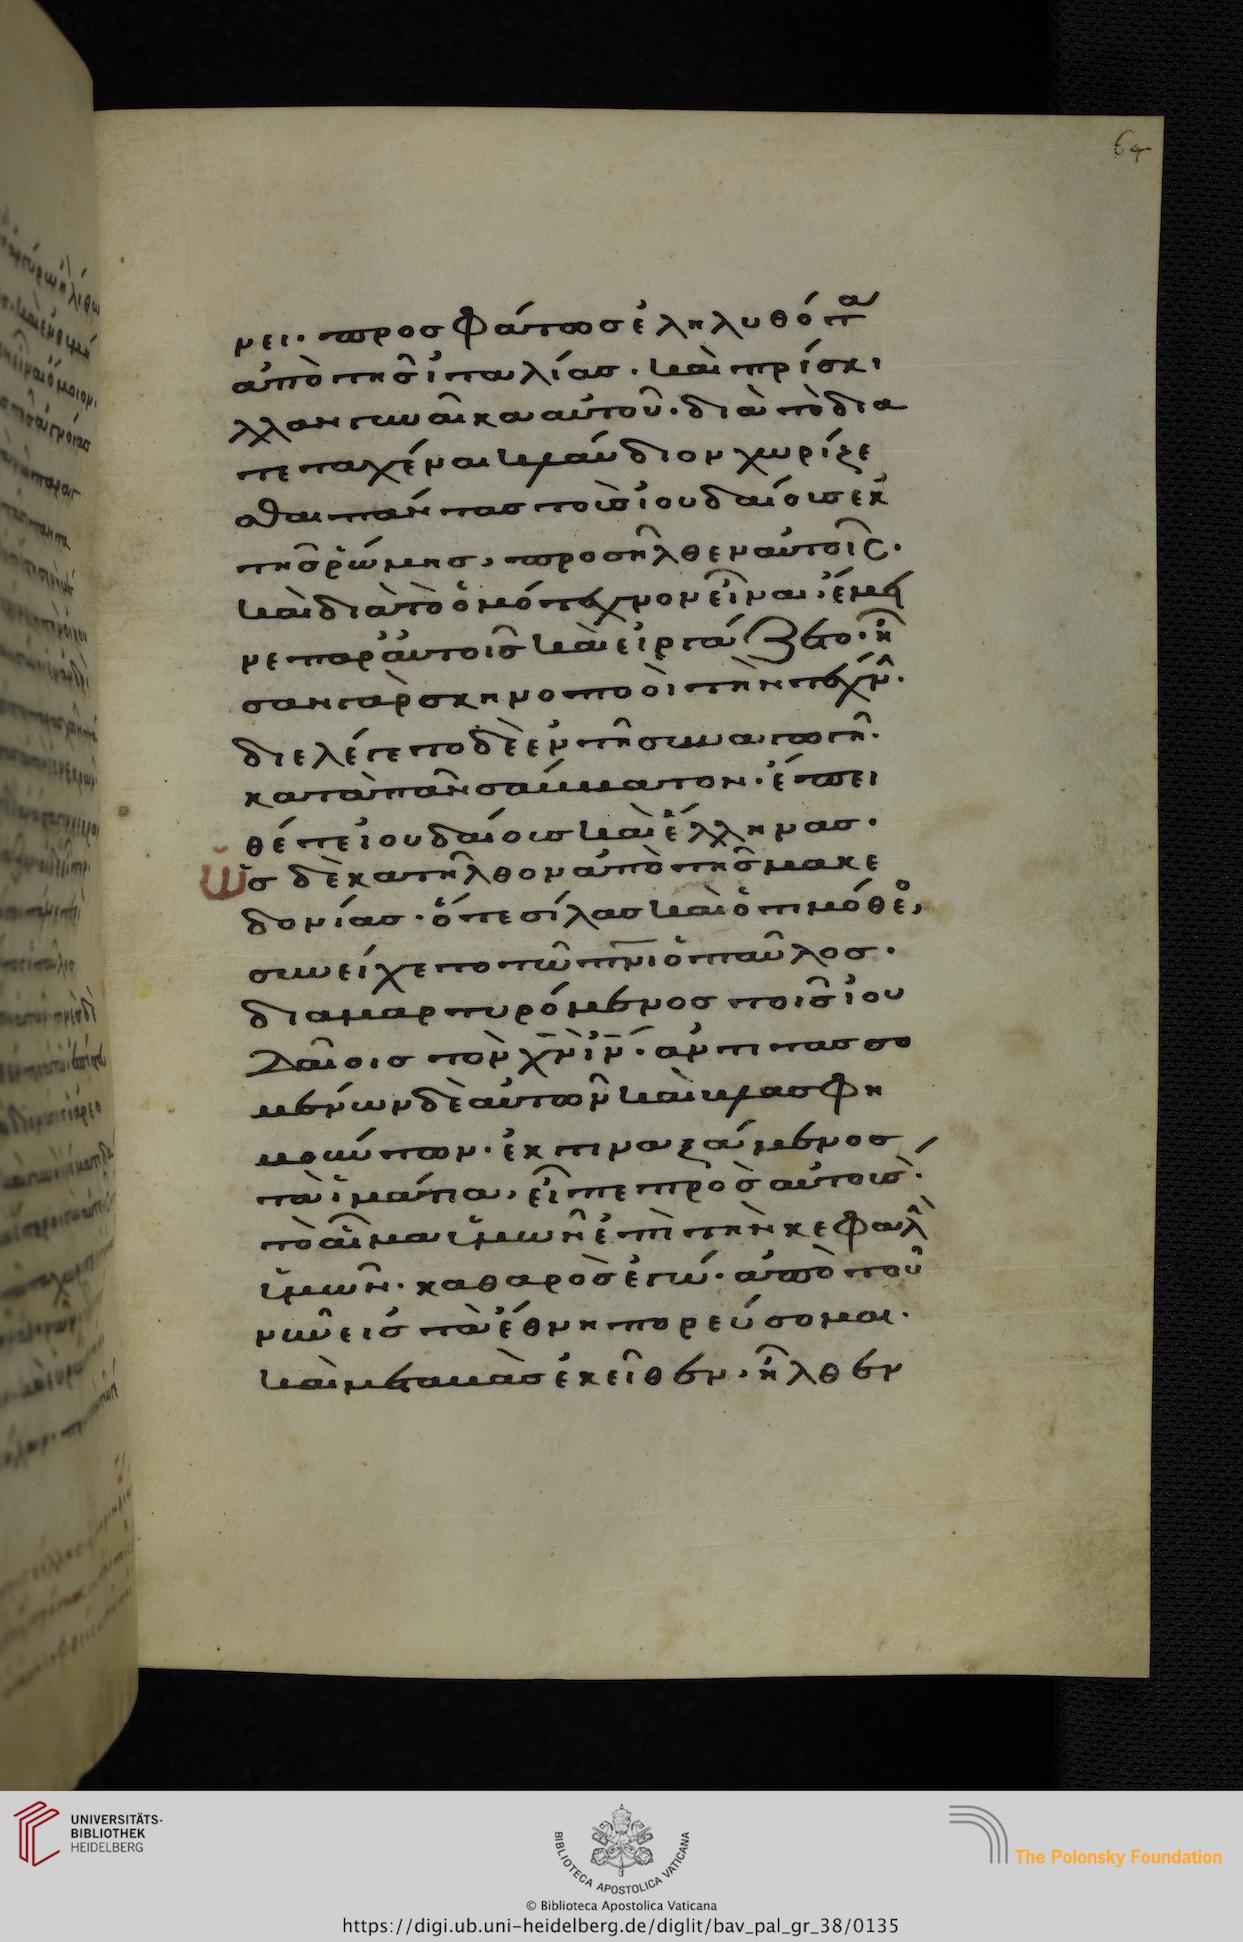 64
νει· προσφάτως ἐληλυθότα
ἀπὸ τῆς ἰταλίας· καὶ πρίσκι
λλαν γυναῖκα αὐτοῦ· διὰ τὸ δια
τεταχέναι κλαύδιον χωρίζε
σθαι πάντας τοὺς ἰουδαίους ἐκ
τῆς ῥώμης, προσῆλθεν αὐτοῖς·
καὶ διὰ τὸ ὁμότεχνον εἶναι, ἔμε
νε παρ' αὐτοῖς καὶ εἰργάζετο· ἦ
σαν γὰρ σκηνοποιοὶ τὴν τέχνην·
διελέγετο δὲ ἐν τῇ συναγωγῇ·
κατὰ πᾶν σάββατον· ἔπει
θέ τε ἰουδαίους καὶ ἕλληνας·
Ὡς δὲ κατῆλθον ἀπὸ τῆς μακε
δονίας· ὅ τε σίλας καὶ ὁ τιμόθεος,
συνείχετο τῶ πνι ὁ παῦλος·
διαμαρτυρόμενος τοῖς ἰου
δαίοις τὸν χν ιν· ἀντιτασσο
μένων δὲ αὐτῶν καὶ βλασφη
μούντων· ἐκτιναξάμενος
τὰ ἱμάτια, εἶπε πρὸς αὐτούς·
τὸ αἷμα ὑμῶν ἐπὶ τὴν κεφαλὴν
ὑμῶν· καθαρὸς ἐγώ· ἀπὸ τοῦ
νῦν εἰς τὰ ἔθνη πορεύσομαι·
καὶ μεταβὰς ἐκεῖθεν, ἦλθεν
UNIVERSITÄTS-
BIBLIOTHEK
HEIDELBERG
BIBLIOTECA APOSTOLICA VATICANA
The Polonsky Foundation
© Biblioteca Apostolica Vaticana
https://digi.ub.uni-heidelberg.de/diglit/bav_pal_gr_38/0135